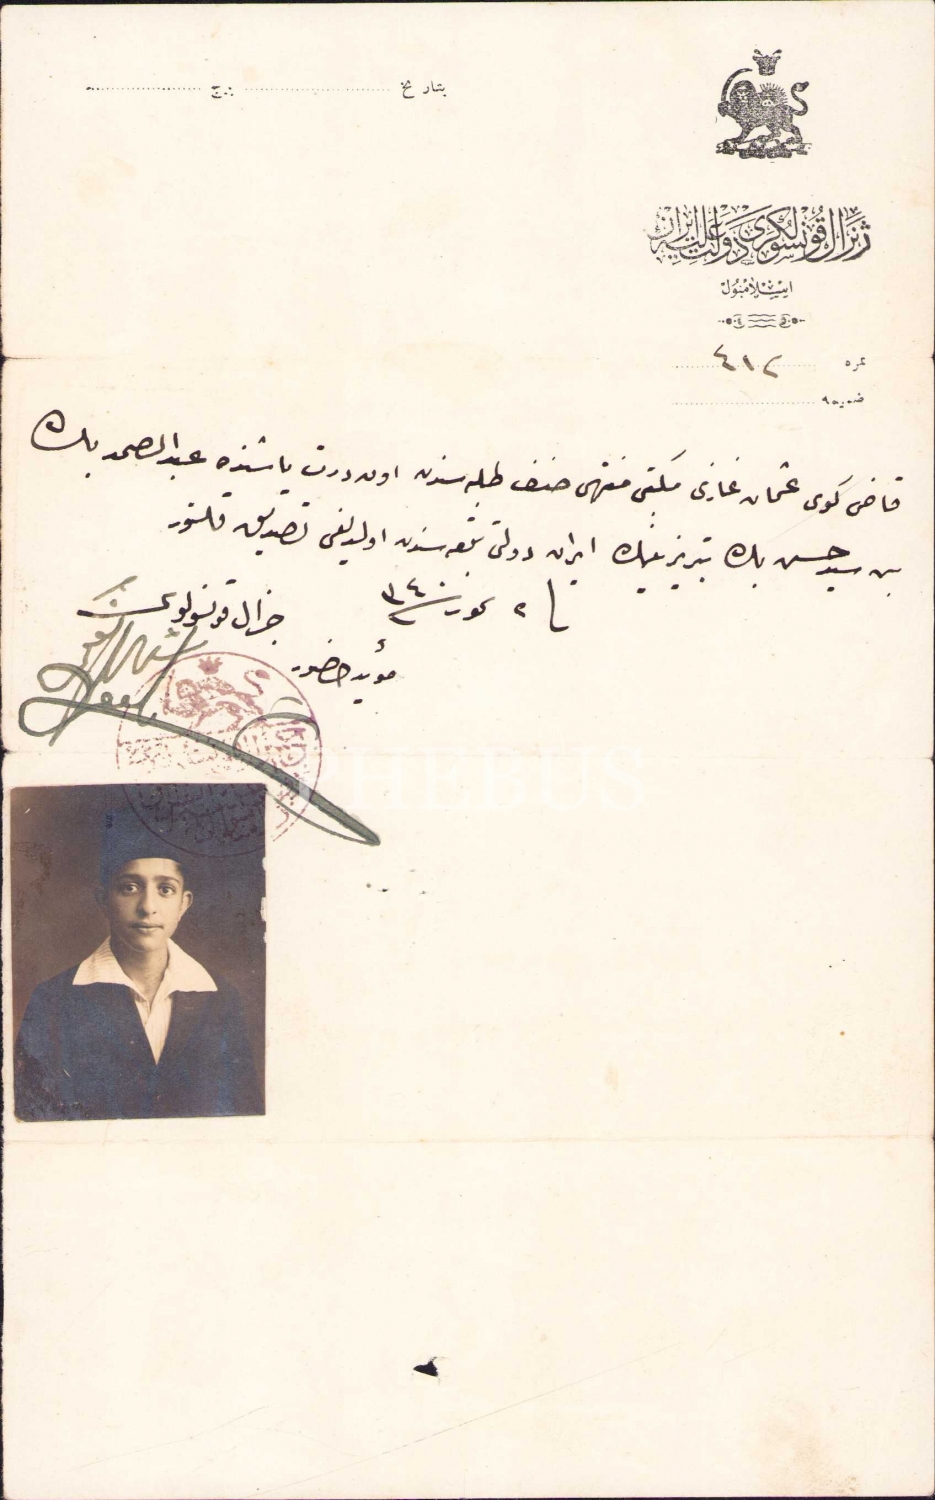 بتاریخ ........ برج ........
ژنرال قونسولگری دولت علیه ایران
اسلامبول
نمره ٤١٢
ضمیمه
قاضی کوی عثمان غازی مکتبی منتهی صنف طلبه سندن اون درت یاشنده عبدالصمد بك
بن سید حسین بك تبریزینك ایران دولتی تبعه سندن اولدیغی تصدیق قلنور
٢ تموز ٣٤٠
جنرال قونسولوسی
مؤید حضور
PHEBUS